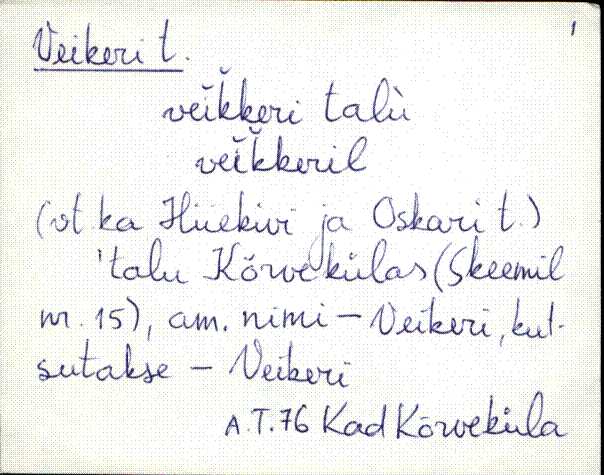 1
Veikeri t.
veĭk̆keri talù
veĭk̆keril
(vt. ka Hiiekivi ja Oskari t.)
'talu Kõrvekülas (Skeemil
nr. 15), am. nimi – Veikeri, kut-
sutakse – Veikeri
A.T. 76 Kad Kõrveküla